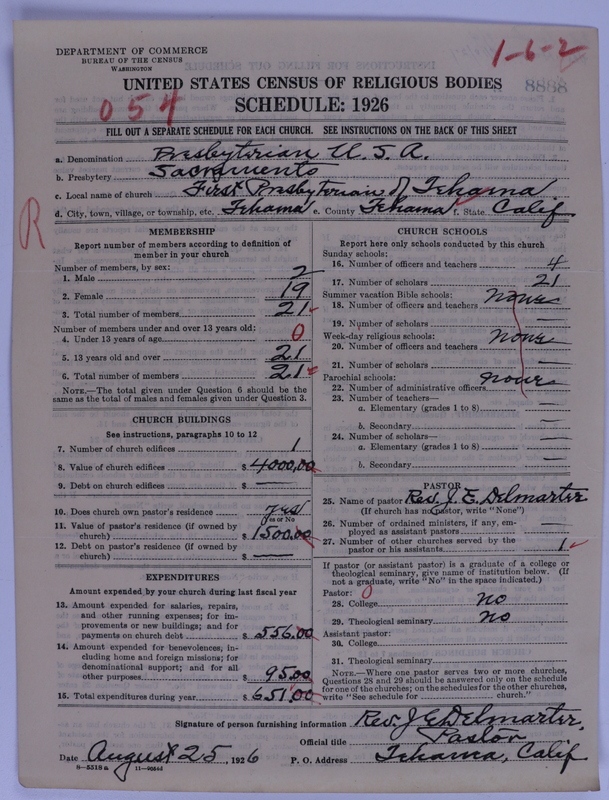 DEPARTMENT OF COMMERCE
BUREAU OF THE CENSUS
WASHINGTON
1-6-2
8888
UNITED STATES CENSUS OF RELIGIOUS BODIES
054
SCHEDULE: 1926
FILL OUT A SEPARATE SCHEDULE FOR EACH CHURCH. SEE INSTRUCTIONS ON THE BACK OF THIS SHEET
a. Denomination Presbyterian U.S.A.
b. Presbytery Sacramento
c. Local name of church First Presbyterian of Tehama
d. City, town, village, or township, etc. Tehama e. County Tehama f. State Calif
R
MEMBERSHIP
Report number of members according to definition of member in your church
Number of members, by sex:
1. Male 2
2. Female 19
3. Total number of members 21
Number of members under and over 13 years old:
4. Under 13 years of age 0
5. 13 years old and over 21
6. Total number of members 21
NOTE.—The total given under Question 6 should be the
same as the total of males and females given under Question 3.
CHURCH BUILDINGS
See instructions, paragraphs 10 to 12
7. Number of church edifices 1
8. Value of church edifices $ 4000.00
9. Debt on church edifices $ —
10. Does church own pastor's residence yes
Yes or No
11. Value of pastor's residence (if owned by
church) $ 1500.00
12. Debt on pastor's residence (if owned by
church) $ —
EXPENDITURES
Amount expended by your church during last fiscal year
13. Amount expended for salaries, repairs,
and other running expenses; for im-
provements or new buildings; and for
payments on church debt $ 556.00
14. Amount expended for benevolences, in-
cluding home and foreign missions; for
denominational support; and for all
other purposes $ 95.00
15. Total expenditures during year $ 651.00
CHURCH SCHOOLS
Report here only schools conducted by this church
Sunday schools:
16. Number of officers and teachers 4
17. Number of scholars 21
Summer vacation Bible schools:
18. Number of officers and teachers none
19. Number of scholars —
Week-day religious schools:
20. Number of officers and teachers none
21. Number of scholars —
Parochial schools:
22. Number of administrative officers none
23. Number of teachers—
a. Elementary (grades 1 to 8) —
b. Secondary —
24. Number of scholars—
a. Elementary (grades 1 to 8) —
b. Secondary —
PASTOR
25. Name of pastor Rev. J. E. Delmarter
(If church has no pastor, write "None")
26. Number of ordained ministers, if any, em-
ployed as assistant pastors —
27. Number of other churches served by the
pastor or his assistants 1
If pastor (or assistant pastor) is a graduate of a college or
theological seminary, give name of institution below. (If
not a graduate, write "No" in the space indicated.)
Pastor: 0
28. College no
29. Theological seminary no
Assistant pastor:
30. College
31. Theological seminary
NOTE.—Where one pastor serves two or more churches,
Questions 28 and 29 should be answered only on the schedule
for one of the churches; on the schedules for the other churches,
write "See schedule for church."
Signature of person furnishing information Rev. J E Delmarter,
Official title Pastor
Date August 25, 1926 P. O. Address Tehama, Calif
8—5518a